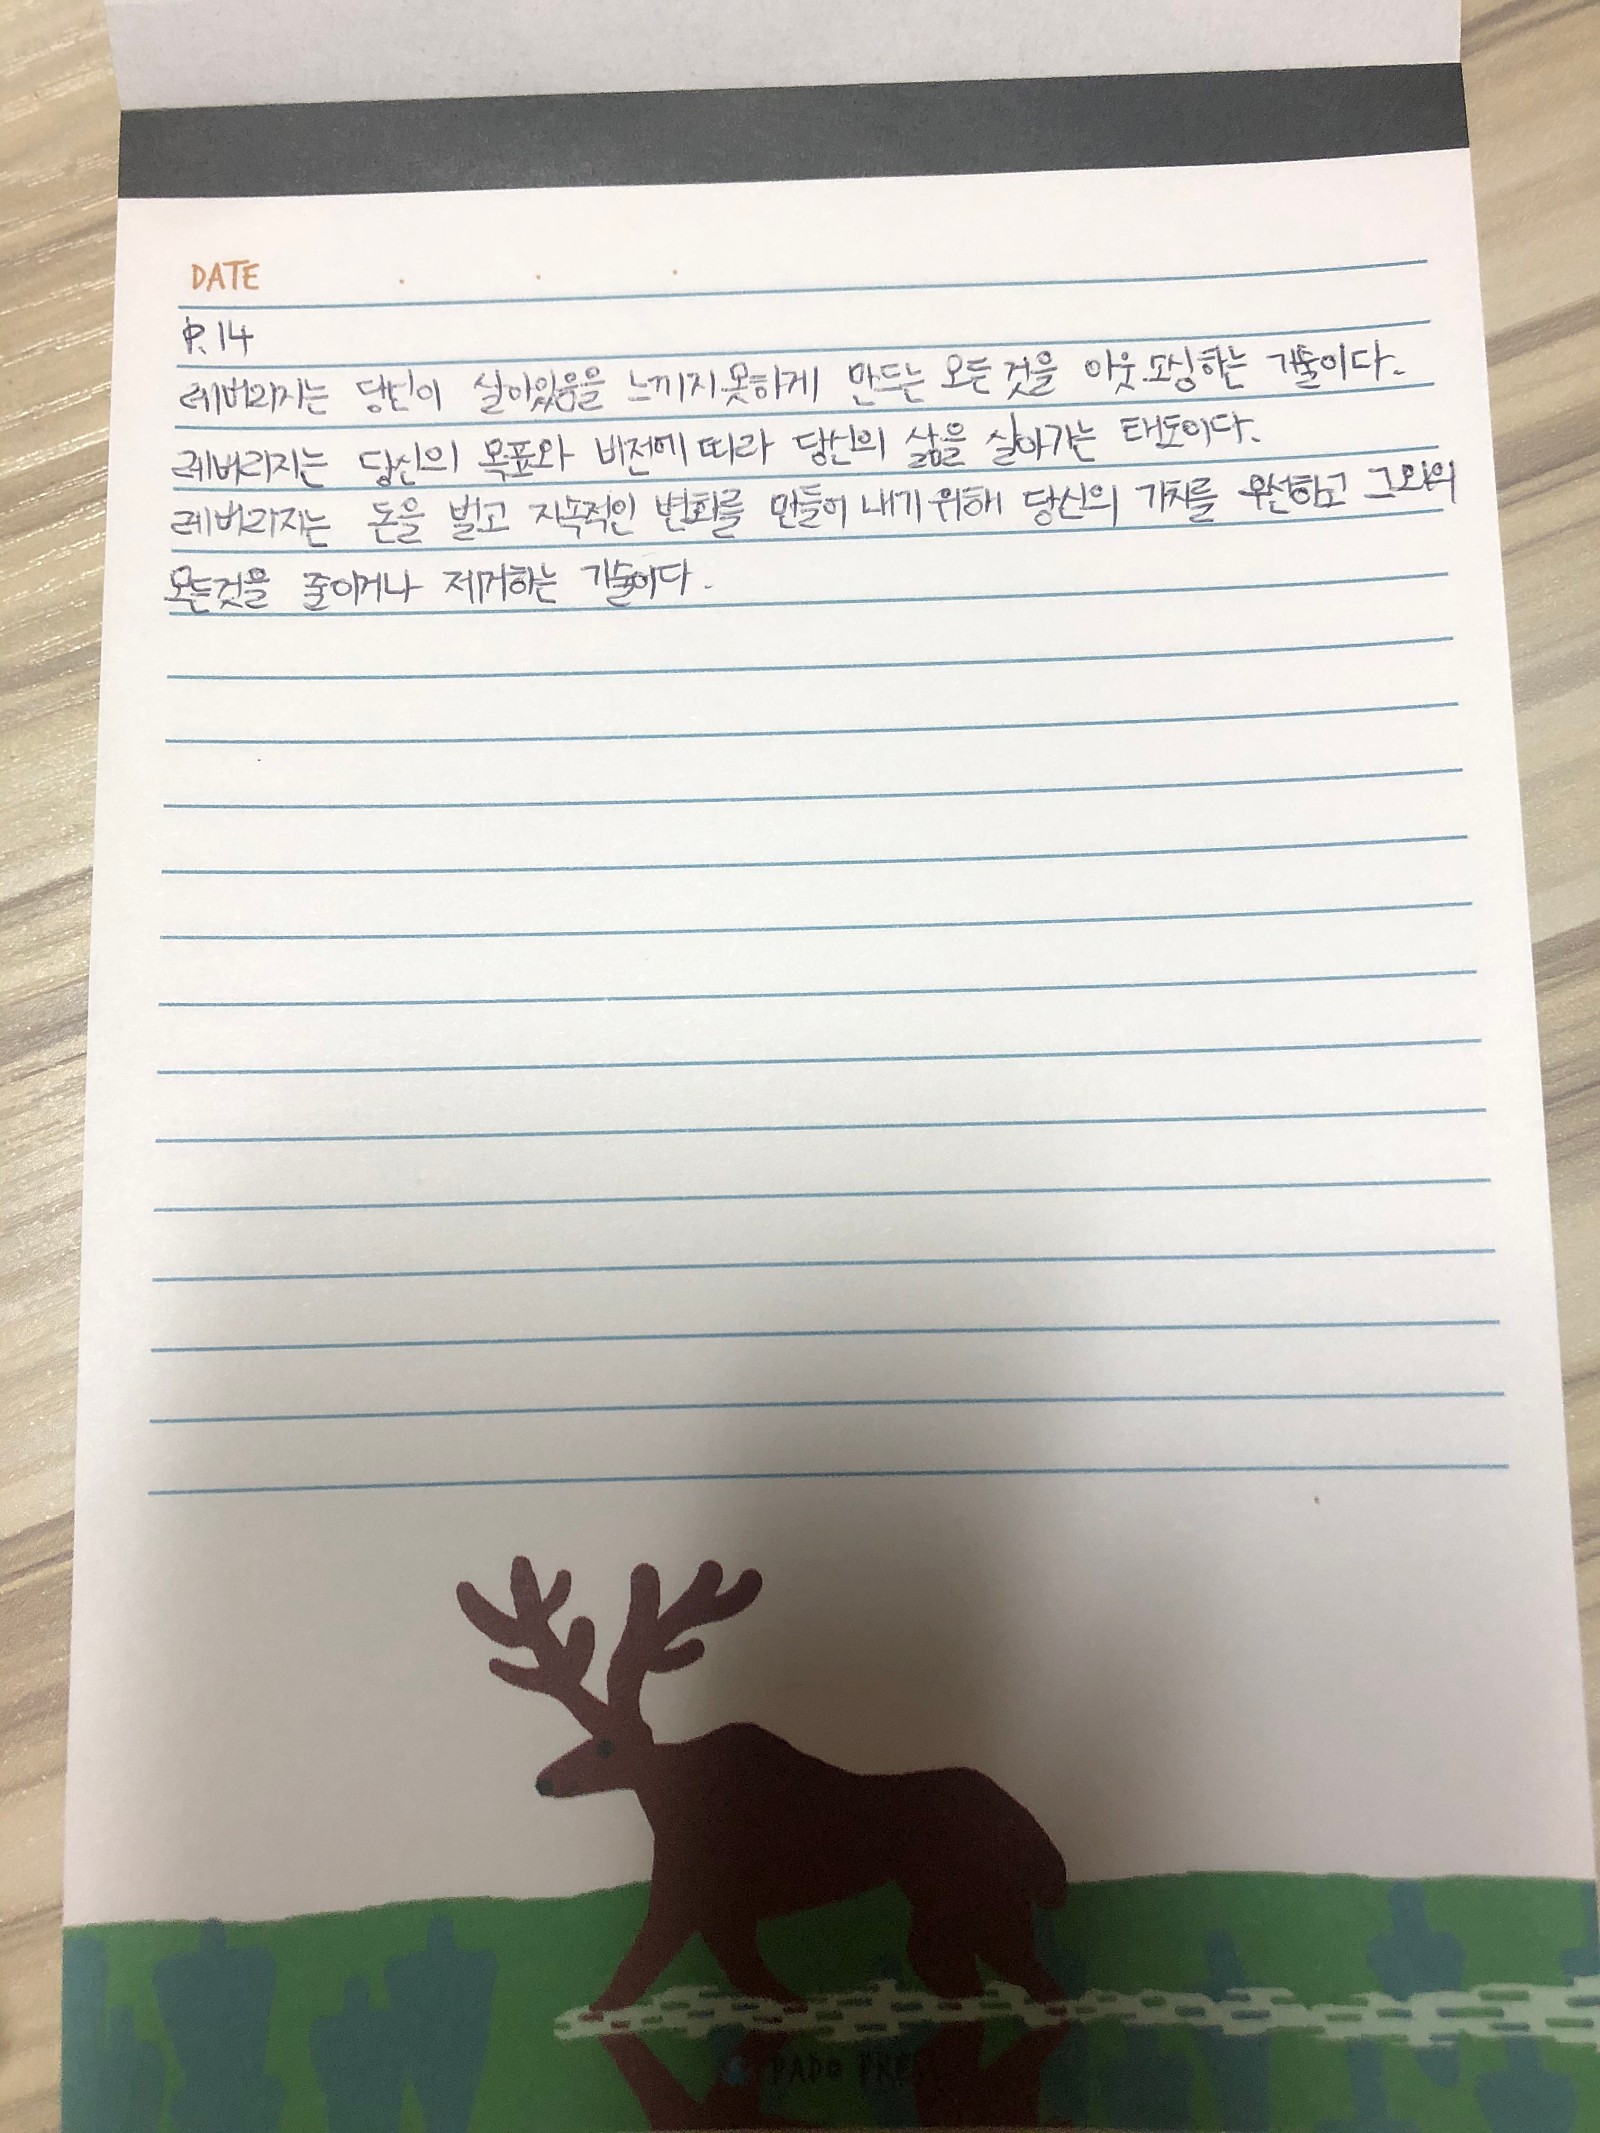 DATE . . .
P.14
레버리지는 당신이 살아있음을 느끼지 못하게 만드는 모든 것을 아웃소싱하는 기술이다.
레버리지는 당신의 목표와 비전에 따라 당신의 삶을 살아가는 태도이다.
레버리지는 돈을 벌고 지속적인 변화를 만들어 내기 위해 당신의 가치를 우선하고 그외의
모든것을 줄이거나 제거하는 기술이다.
PADO PRESS